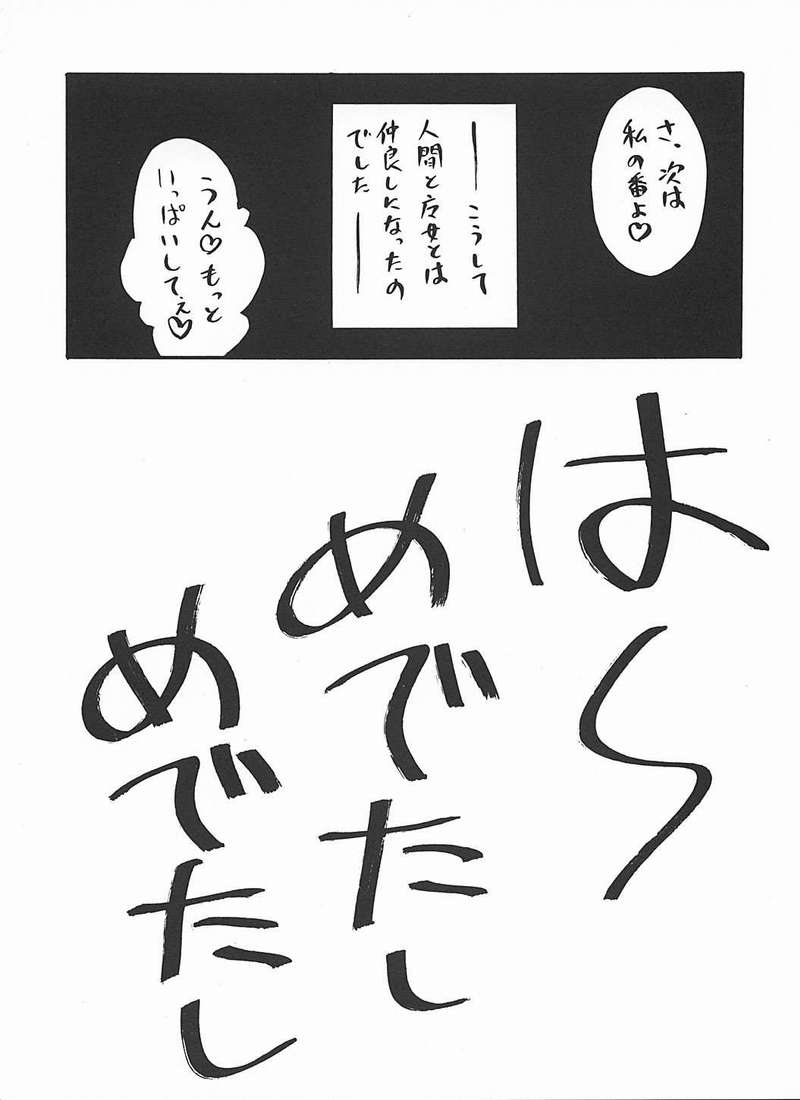 さ、次は
私の番よ♡
――こうして
人間と魔女とは
仲良しになったの
でした――
うん♡もっと
いっぱいしてぇ♡
は～
めでたし
めでたし